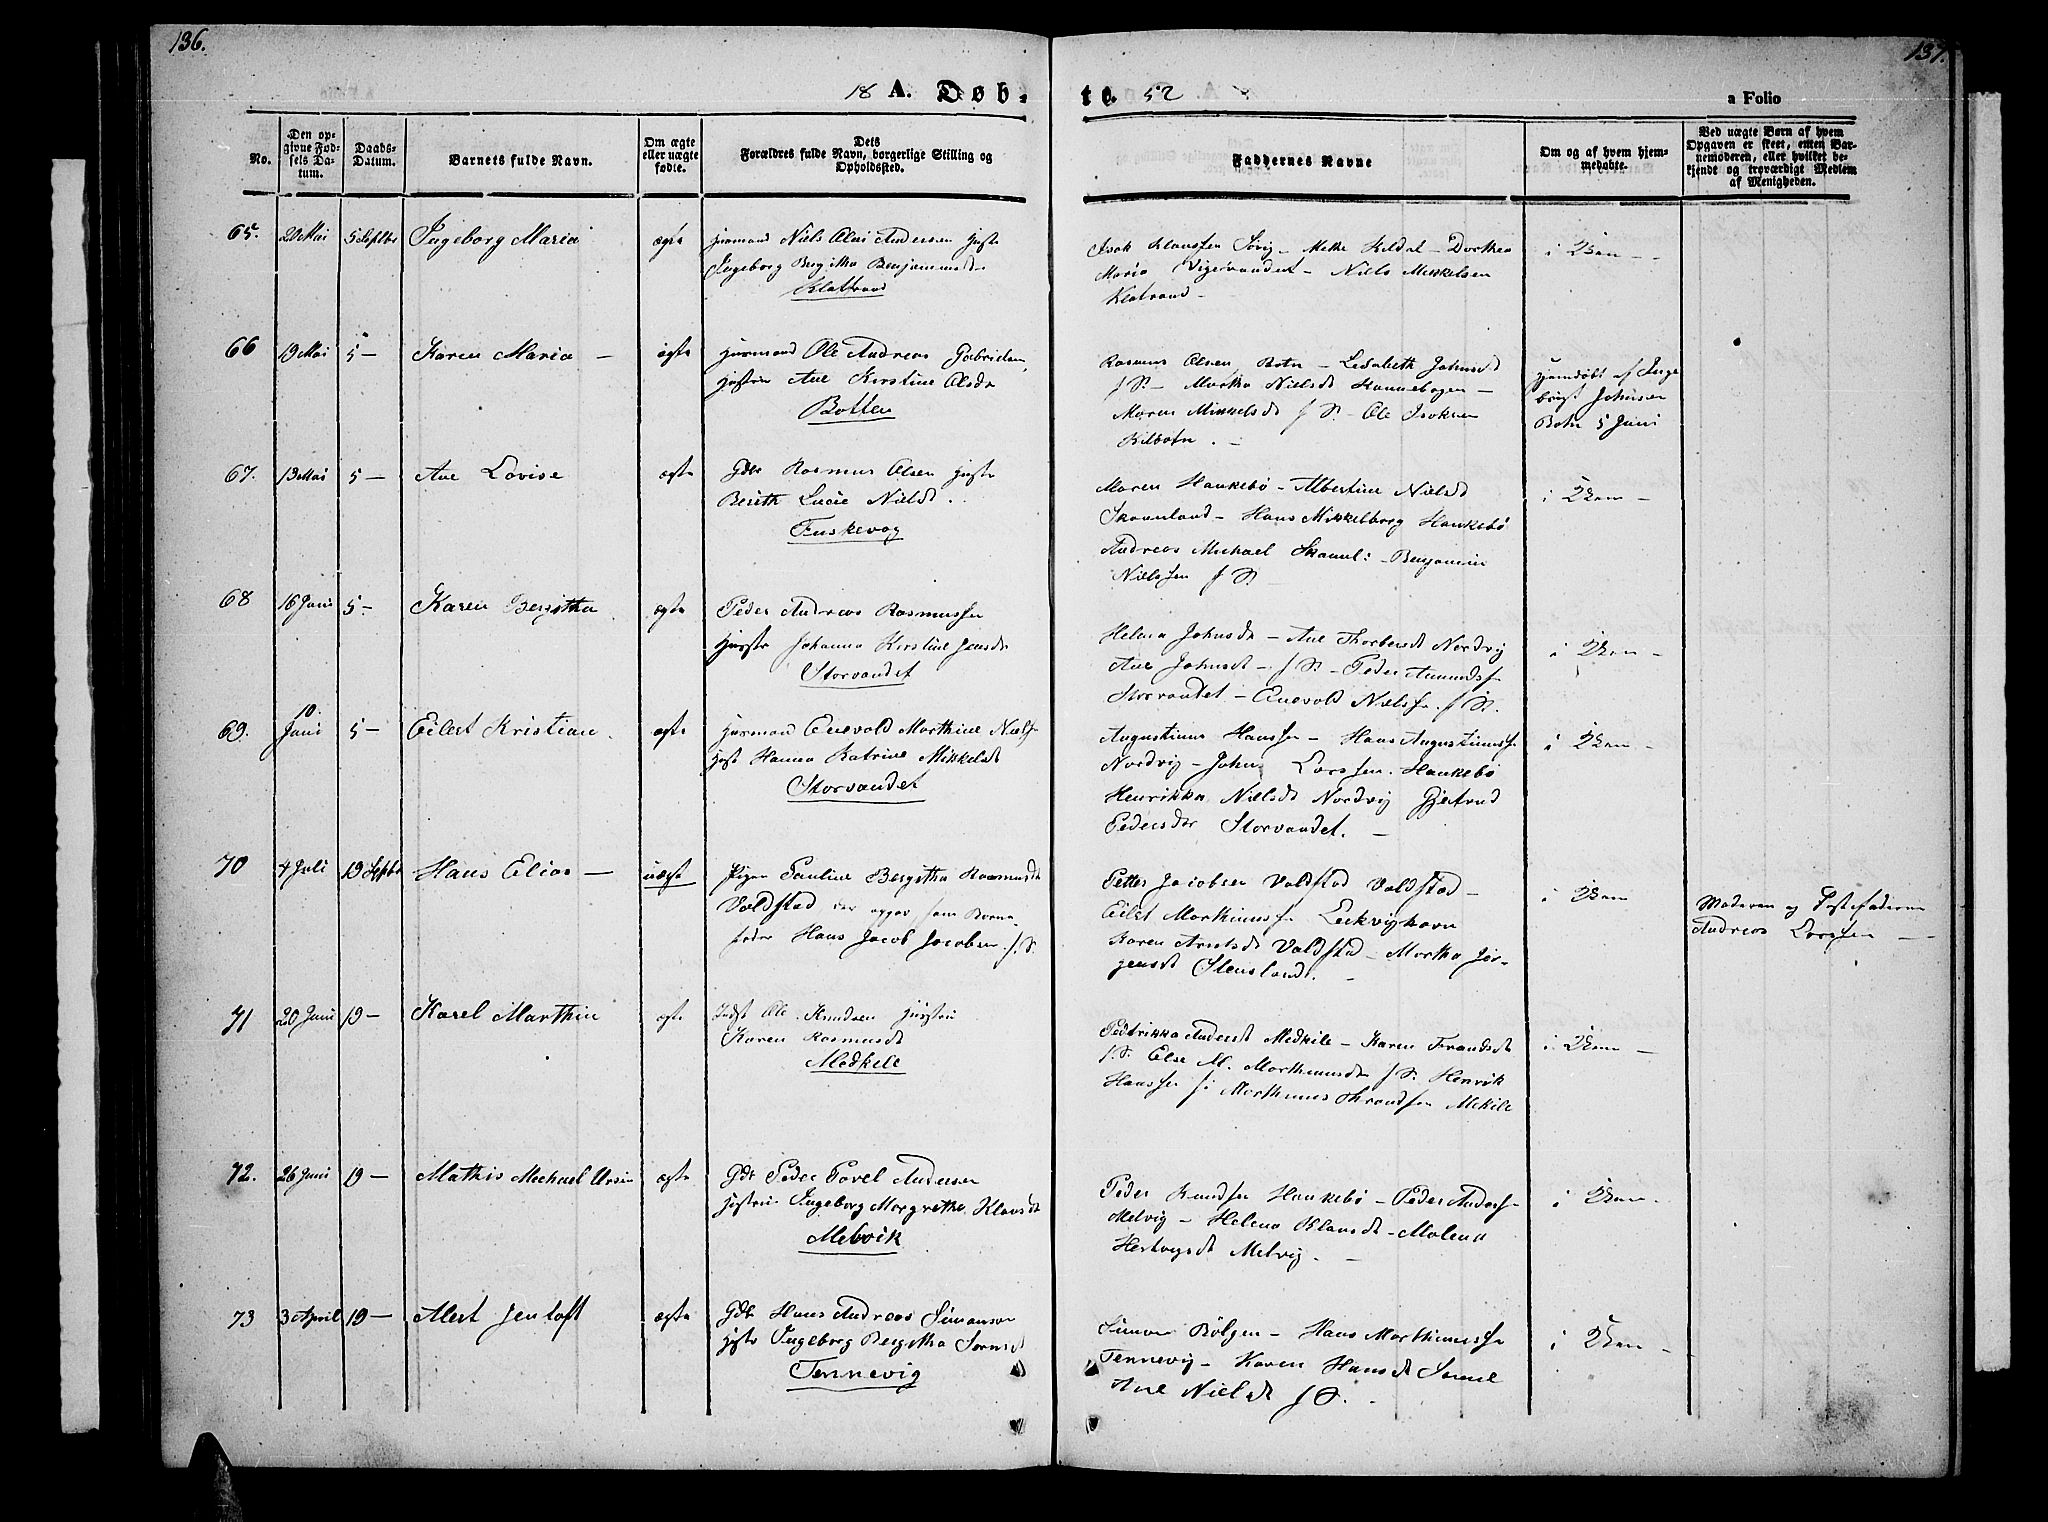 136.
137.
18 A. Døb-
te. 52
a Folio
No.
Den op-
givne Fød-
sels Da-
tum.
Daabs-
Datum.
Barnets fulde Navn.
Om ægte
eller uægte
fødte.
Dets
Forældres fulde Navn, borgerlige Stilling og
Opholdssted.
Faddernes Navne
Om og af hvem hjem-
medøbte.
Ved uægte Børn af hvem
Opgaven er skeet, enten Bar-
nemoderen, eller hvilket be-
kjendt og troværdigt Medlem
af Menigheden.
65. 20 Mai 5 Septbr Ingeborg Maria ægte Huusmand Niels Olai Andersen Hustr
Ingeborg Bergitha Benjaminsd
Klattrand
Isak Klaussen Sørvig - Mette Keldal - Dorthea
Maria Vigervandet - Niels Mikkelsen
Klatrand -
i
66 19 Mai 5 - Karen Maria - ægte Huusmand Ole Andreas Gabrielsen,
Hustrue Ane Kirstine Olsdr
Botten
Rasmus Olsen Botn - Lisabeth Johnsd
f S. - Martha Nielsd Kannebogen -
Maren Mikkelsd f S. - Ole Isaksen
Kilbotn. -
Hjemdøbt af Inge
brigt Johnsen
Botn 5 Juni
67. 13 Mai 5 - Ane Lovise ægte Gdbr Rasmus Olsen Hustr
Bereth Lucie Nielsd.
Fuskevog
Maren Haukebø - Albertine Nielsd
Skaanland - Hans Mikkelborg Haukebø
Andreas Michael Skaanl: - Benjamin
Nielssen f S. -
i
68 16 Juni 5 - Karen Bergitha ægte Peder Andreas Rasmussen
Hustr Johanna Kirstine Jensdr
Storvandet
Helena Johnsdr - Ane Thorbersd Nordvig
Ane Johnsdt - f S. - Peder Amundsen
Storvandet - Enevold Nielssen f S.
i
69. 10. Juni 5 - Eilert Kristian. ægte Huusmand Enevold Marthine Niels
Hust Hanna Katrine Mikkelsd
Storvandet
Augustinus Hanssen - Hans Augustinussen
Nordvig - John Larssen. Haukebø
Henrikka Nielsd Nordvig Gjertrud
Pedersdr Storvandet. -
i
70 4 Juli 19 Septbr Hans Elias - uægte Pigen Pauline Bergitha Rasmusd
Voldstad der opgav som Barne
fader Hans Jacob Jacobsen f. S.
Petter Jacobsen Voldstad Voldstad -
Eilert Marthinussen
Karen Arntsd Voldstad - Martha Jør-
gensd Stensland. -
i
Moderen og
Andreas Larssen -
71 20 Juni 19 - Karel Marthin ægte Indst Ole Knudsen Hustrue
Karen Rasmusd
Medkile
Pedrikka Andersd Medkile - Karen Frandsd
f. S. Else M. Marthinusd f S. Henrik
Hanssen f Marthinus Thrandsen Mekile
i
72. 26 Juni 19 - Mathis Michael Ursin ægte Gdbr Peder Povel Andersen
Hustrue Ingeborg Margrethe Klausd
Melvik
Peder Knudsen Haukebø - Peder Anders-
Melvig - Helena Klausd - Malena
Hertvigsd Melvig. -
i
73 3 April 19 - Alert Jentoft ægte Gdbr Hans Andreas Simonsen
Hustr Ingeborg Bergitha
Tennevig
Simon Bølgen - Hans Marthinussen
Tennevig - Karen Hansd
Ane Nielsd f S.
i